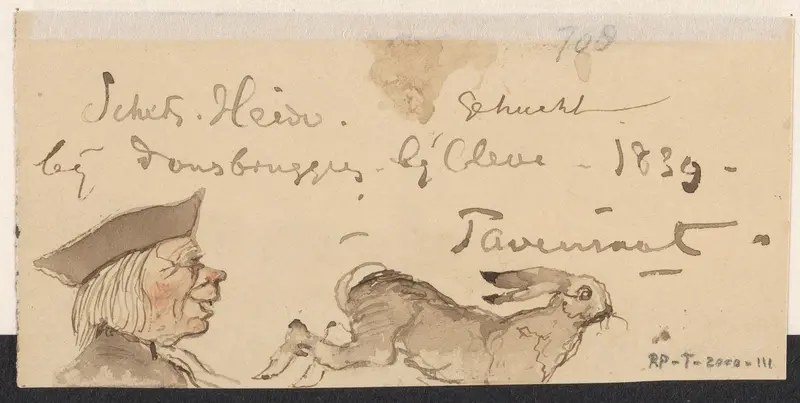 708
Schets. Heide. Gehucht
bÿ Donsbrugges. bÿ Cleve - 1839 -
Tavenraat
RP-T-2000-111